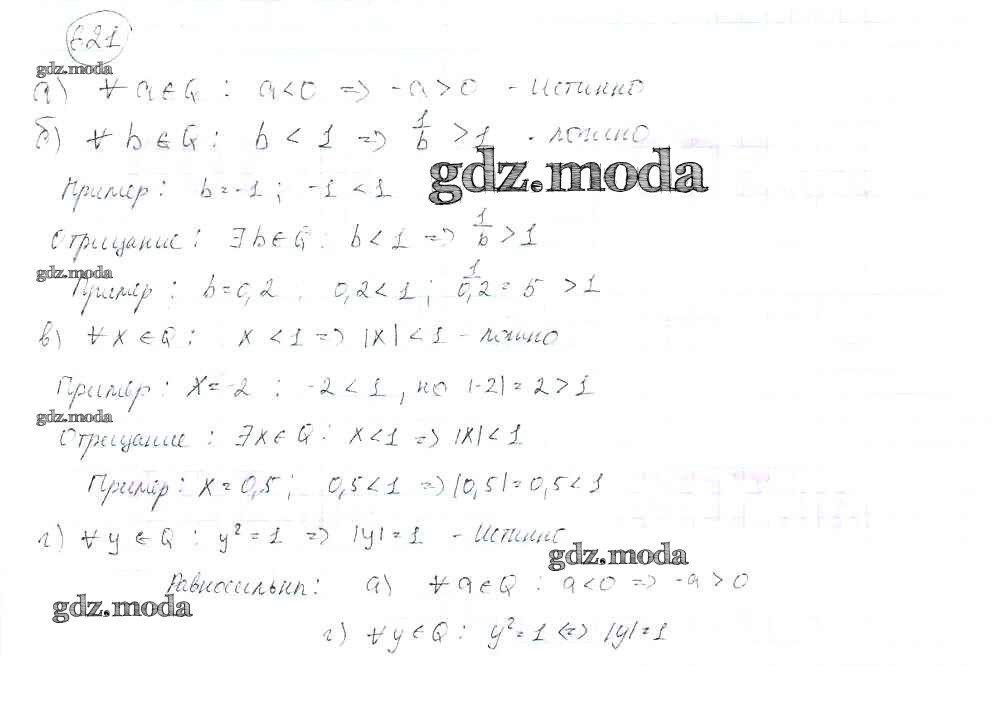 621
gdz.moda
а) ∀ a ∈ Q : a < 0 ⇒ -a > 0 - Истинно
б) ∀ b ∈ Q : b < 1 ⇒ 1/b > 1 - ложно
gdz.moda
Пример : b = -1 ; -1 < 1
Отрицание : ∃ b ∈ Q : b < 1 ⇒ 1/b > 1
gdz.moda
Пример : b = 0,2 ; 0,2 < 1 ; 1/0,2 = 5 > 1
в) ∀ x ∈ Q : x < 1 ⇒ |x| < 1 - ложно
Пример : x = -2 ; -2 < 1 , но |-2| = 2 > 1
gdz.moda
Отрицание : ∃ x ∈ Q : x < 1 ⇒ |x| < 1
Пример : x = 0,5 ; 0,5 < 1 ⇒ |0,5| = 0,5 < 1
г) ∀ y ∈ Q : y² = 1 ⇒ |y| = 1 - Истинно
gdz.moda
Равносильны : а) ∀ a ∈ Q : a < 0 ⇒ -a > 0
gdz.moda
г) ∀ y ∈ Q : y² = 1 ⇔ |y| = 1